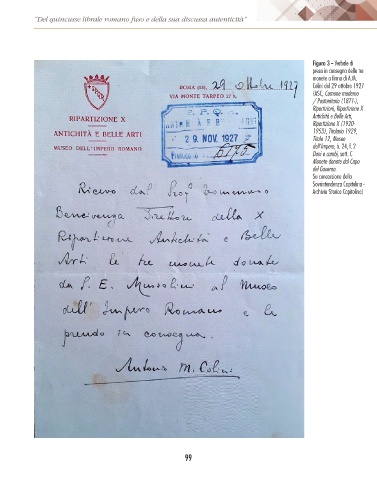 "Del quincusse librale romano fuso e della sua discussa autenticità"
S P Q R
RIPARTIZIONE X
ANTICHITÀ E BELLE ARTI
MUSEO DELL'IMPERO ROMANO
ROMA (23), 29 ottobre 1927
VIA MONTE TARPEO 27 B.
S. P. Q. R.
29 NOV. 1927
6175
Ricevo dal Prof. Tommaso
Bencivenga Direttore della X
Ripartizione Antichità e Belle
Arti le tre monete donate
da S. E. Mussolini al Museo
dell'Impero Romano e le
prendo in consegna.
Antonio M. Colini
Figura 3 – Verbale di
presa in consegna delle tre
monete a firma di A.M.
Colini del 29 ottobre 1927
(ASC, Comune moderno
/ Postunitario (1871-),
Ripartizioni, Ripartizione X
Antichità e Belle Arti,
Ripartizione X (1920-
1953), Titolario 1929,
Titolo 12, Museo
dell'Impero, b. 24, f. 2
Doni e cambi, sott. C
Monete donate dal Capo
del Governo
Su concessione della
Sovraintendenza Capitolina -
Archivio Storico Capitolino)
99